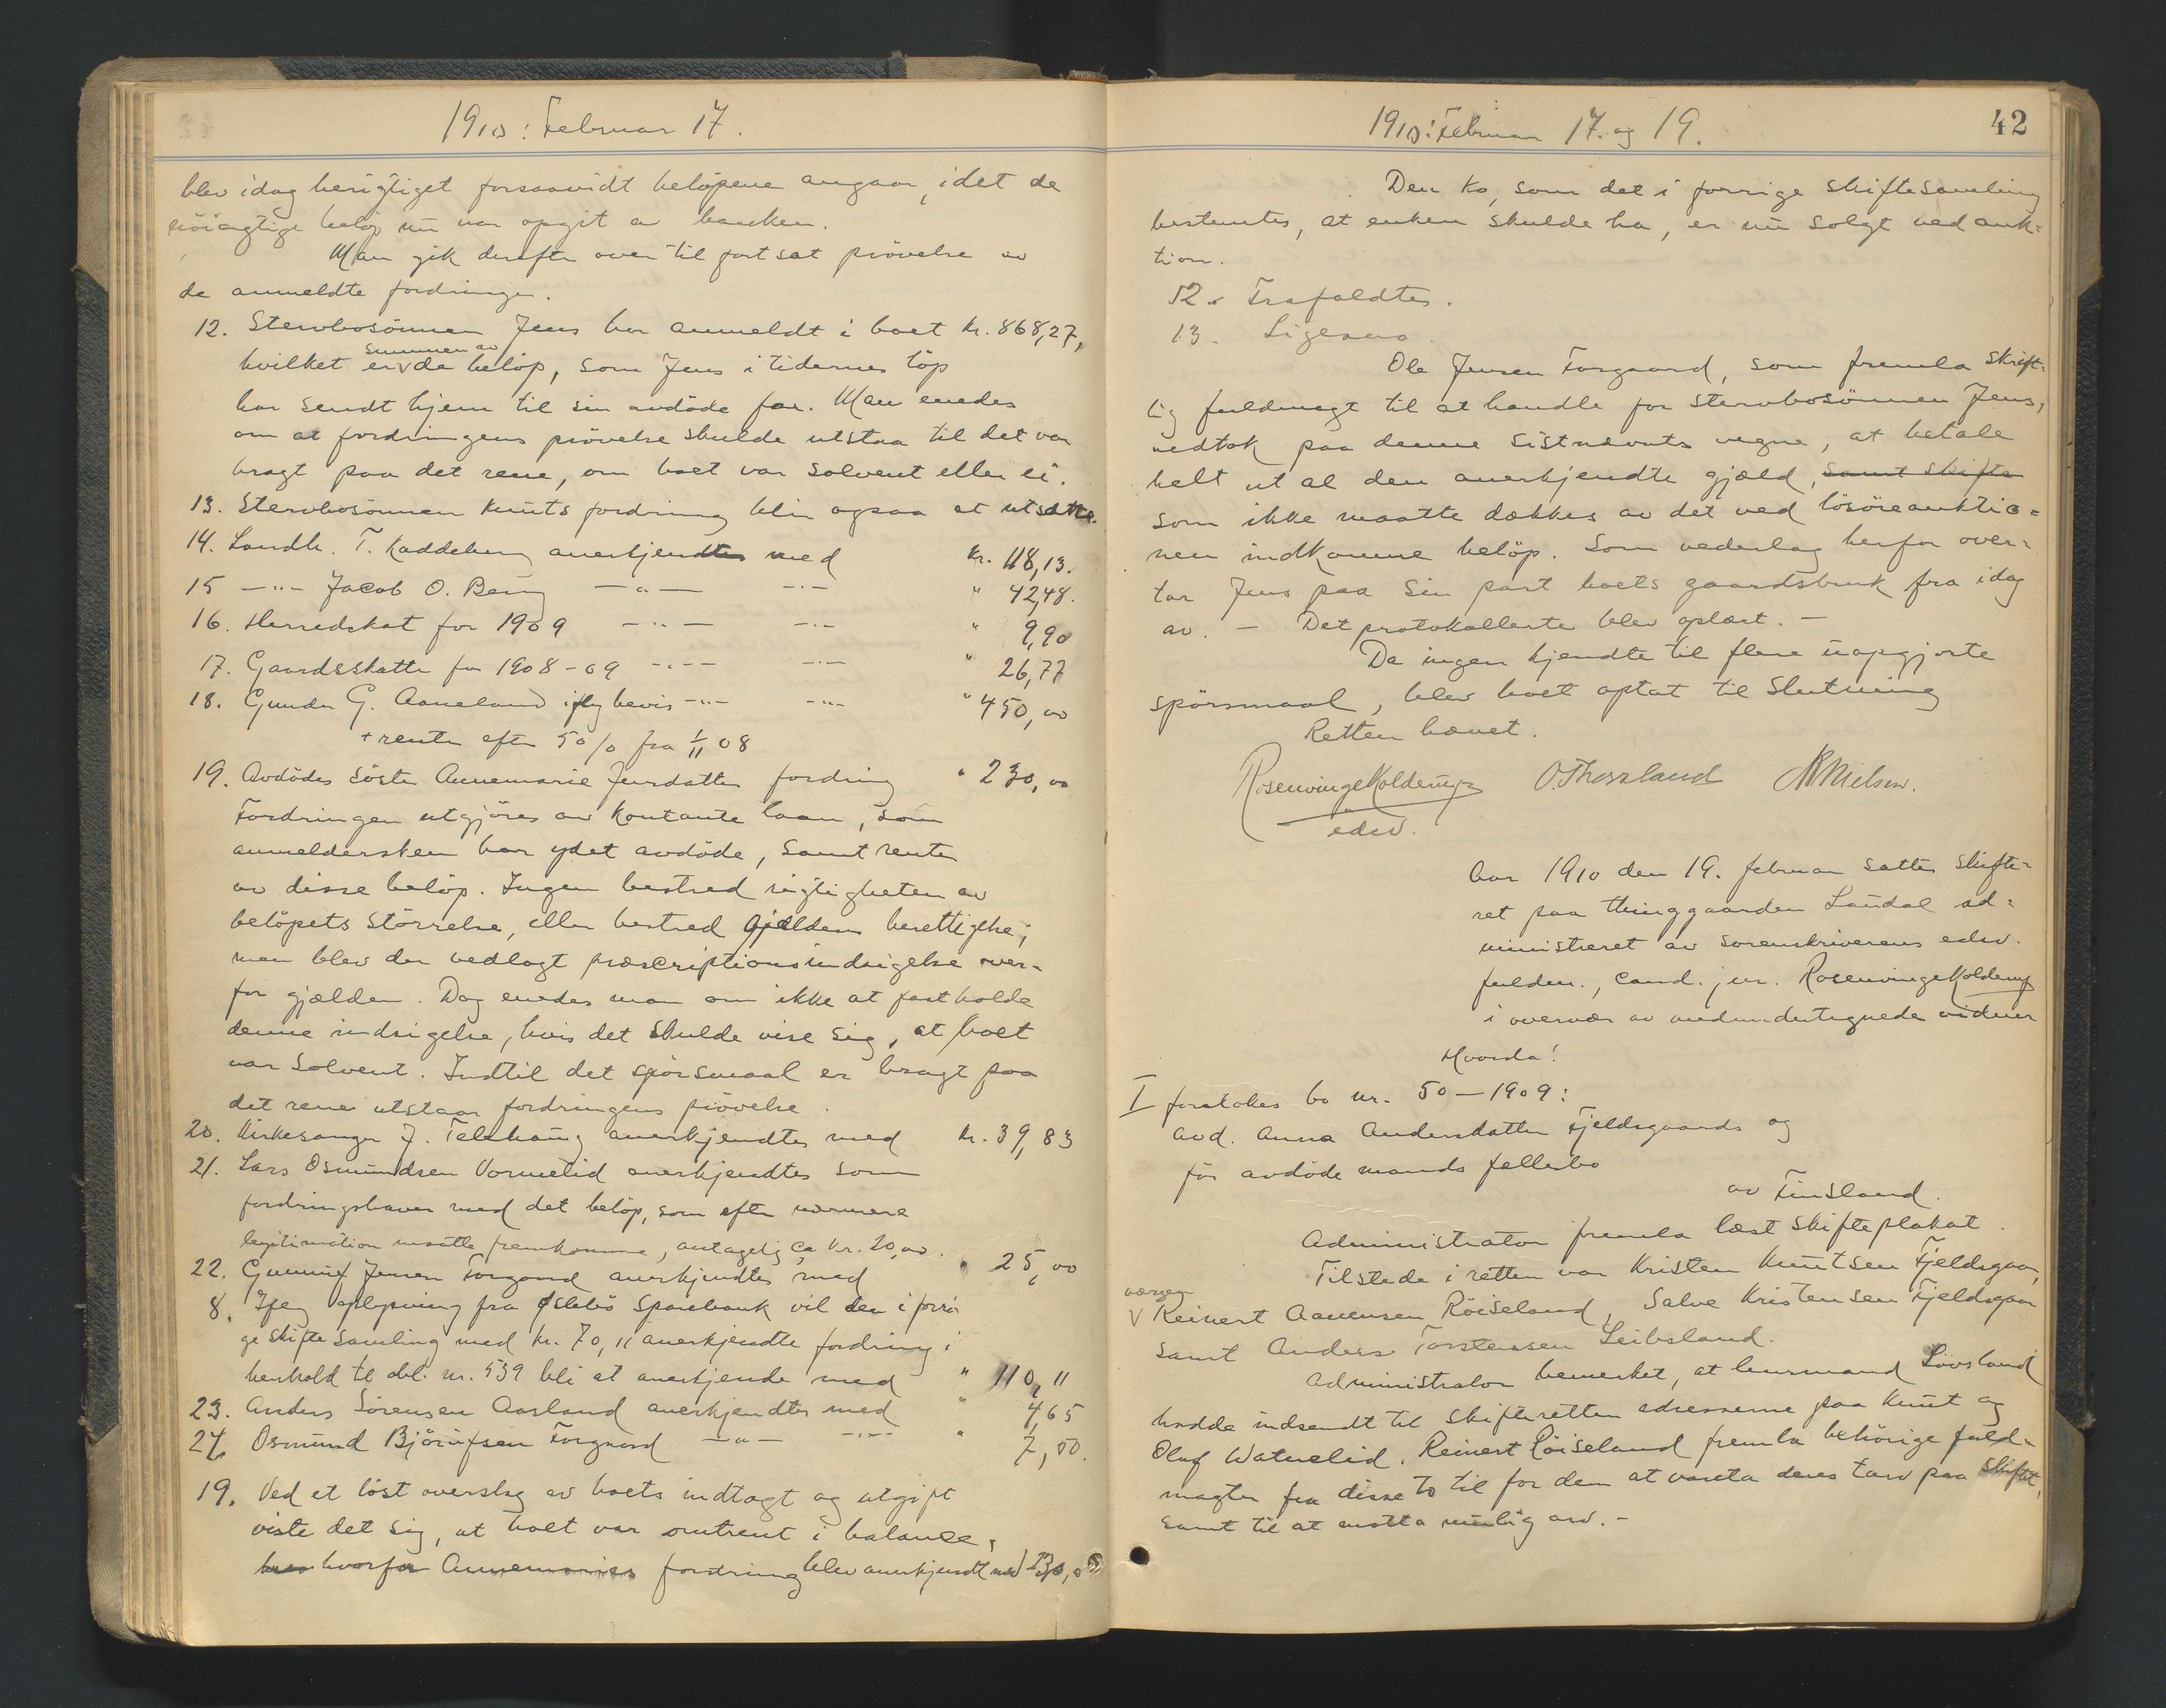 1910: Februar 17.
blev idag berigtiget forsaavidt belöpene angaar, idet de
nöiagtige belöp nu var opgit av banken.
Man gik derefter over til fortsat prövelse av
de anmeldte fordringer.
12. Stervbosönnen Jens har anmeldt i boet kr. 868,27,
hvilket er summen av de belöp, som Jens i tidernes löp
har sendt hjem til sin avdöde far. Man enedes
om at fordringens prövelse skulde utstaa til det var
bragt paa det rene, om boet var solvent eller ei.
13. Stervbosönnen Knuts fordring blir ogsaa at utsætte.
14. Landh. T. Kaddeberg anerkjendtes med kr. 118,13.
15 —"— Jacob O. Berg —"— —"— " 42,48.
16. Herredskat for 1909 —"— —"— " 9,90
17. Gaardsskatter for 1908-09 —"— —"— " 26,77
18. Gunder G. Aaneland iflg bevis —"— —"— " 450,00
+ renter efter 5 o/o fra 1/11 08
19. Avdödes söster Annemarie Jensdatters fordring " 230,00
Fordringen utgjöres av kontante laan, som
anmeldersken har ydet avdöde, samt renter
av disse belöp. Ingen bestred rigtigheten av
belöpets störrelse, eller bestred gjældens berettigelse;
men blev der nedlagt præscriptionsindsigelse over-
for gjælden. Dog enedes man om ikke at fastholde
denne indsigelse, hvis det skulde vise sig, at boet
var solvent. Indtil det spörsmaal er bragt paa
det rene utstaar fordringens prövelse.
20. Kirkesanger J. Telehaug anerkjendtes med kr. 39,83
21. Lars Osmundsen Vormelid anerkjendtes som
fordringshaver med det belöp, som efter nærmere
legitimation maatte fremkomme, antagelig ca kr. 20,00.
22. Gunnuf Jensen Forgaard anerkjendtes med " 25,00
8. Ifölg oplysning fra Öslebö Sparebank vil den i forri-
ge skiftesamling med kr. 70,11 anerkjendte fordring i
henhold til obl. nr. 539 bli at anerkjende med " 110,11
23. Anders Sörensen Aasland anerkjendtes med " 4,65
24. Osmund Björnfsen Forgaard —"— —"— " 7,50.
19. Ved et löst overslag av boets indtægt og utgift
viste det sig, at boet var omtrent i balance,
hvorfor Annemaries fordring blev anerkjendt med 230,00
1910: Februar 17. og 19.
42
Den ko, som det i forrige skiftesamling
bestemtes, at enken skulde ha, er nu solgt ved auk=
tion.
12. Frafaldtes.
13. Ligesaa.
Ole Jensen Forgaard, som fremla skrift=
lig fuldmagt til at handle for stervbosönnen Jens,
vedtok paa denne sistnævnts vegne, at betale
helt ut al den anerkjendte gjæld, samt skifte
som ikke maatte dækkes av det ved lösöreauktio=
nen indkomne belöp. Som vederlag herfor over=
tar Jens paa sin part boets gaardsbruk fra idag
av. — Det protokollerte blev oplæst. —
Da ingen kjendte til flere uopgjorte
spörsmaal, blev boet optat til slutning
Retten hævet.
Rosenvinge Kolderup O. Thorsland NNielsen.
edsv.
Aar 1910 den 19. februar sattes skifte=
ret paa thinggaarden Laudal ad=
ministreret av sorenskriverens edsv.
fuldm., cand. jur. Rosenvinge Kolderup
i overvær av medundertegnede vidner
Hvorda!
I foretokes bo nr. 50—1909:
avd. Anna Andersdatter Fjeldsgaards og
för avdöde mands fellesbo
av Finsland.
Administrator fremla læst skifteplakat.
Tilstede i retten var Kristen Knutsen Fjeldsgaar,
værgen Reinert Aanensen Röiseland, Salve Kristensen Fjeldsgaar
samt Anders Torstensen Leibsland.
Administrator bemerket, at lensmand Lövsland
hadde indsendt til skifteretten adresserne paa Knut og
Oluf Watnelid. Reinert Röiseland fremla behörige fuld=
magter fra disse to til for dem at vareta deres tarv paa skiftet,
samt til at motta mulig arv. —